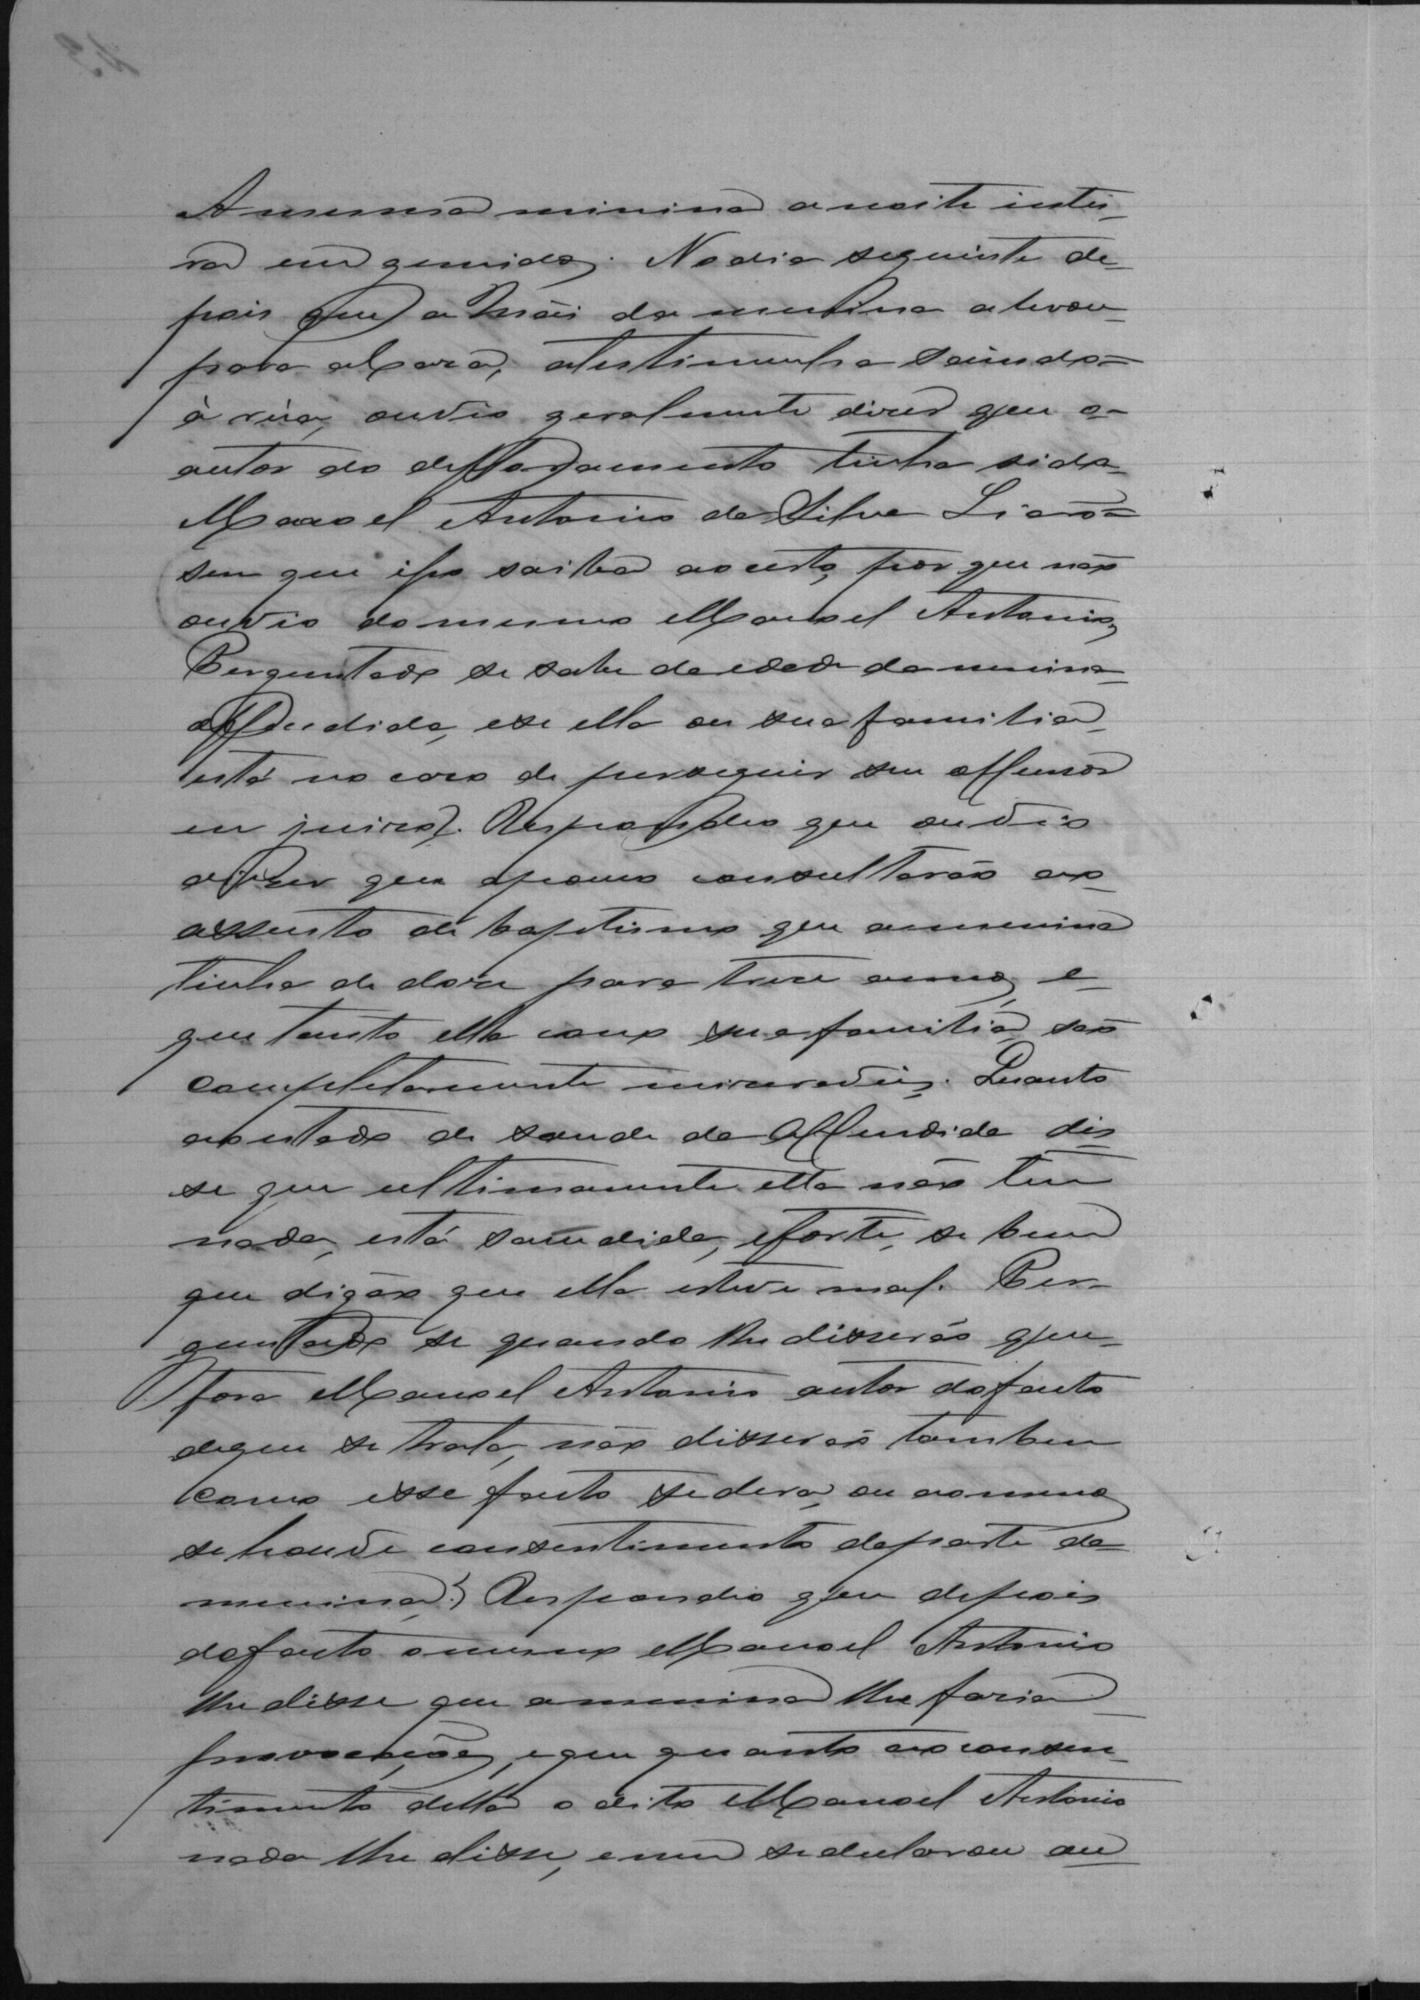 A mesma minina a noite intei-
ra em gemidos. No dia seguinte de-
pois que a Mãi da menina a levou
para a casa, a testimunha saindo
á rúa, ouvio geralmente dizer que o
autor do defloramento tinha sido
Manoel Antonio da Silva Leão
sem que isso saiba ao certo, por que não
ouvio do mesmo Manoel Antonio,
Perguntado se sabe da edade da menina
offendida, e se ella ou sua familia
está no caso de perseguir seu offensor
em juizo. Respondeo que ouvio
dizer que a pouco consultarão ao
assento de baptismo que a menina
tinha de doze para treze annos, e
que tanto ella como sua familia são
completamente miseraveis. Quanto
ao estado de saude da offendida dis-
se que ultimamente ella não tem
nada, está saccudida, e forte, se bem
que digão que ella esteve mal. Per-
guntado se quando lhe disserão que
fora Manoel Antonio autor do facto
de que se trata, não disserão tambem
como esse facto se dera, ou ao menos
se houve consentimento da parte da
menina? Respondeo que depois
do facto o mesmo Manoel Antonio
lhe disse que a menina lhe fazia
provocações, e que quanto ao consen-
timento della o dito Manoel Antonio
nada lhe disse, e nem se declarou au